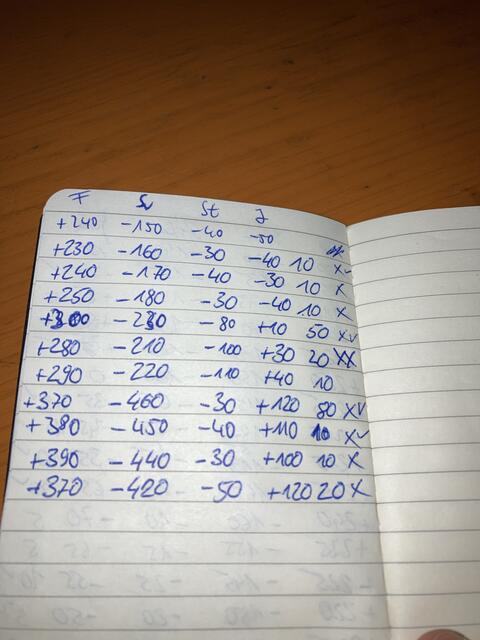 F S St J
+240 -150 -40 -50
+230 -160 -30 -40 10 x✓
+240 -170 -40 -30 10 x
+250 -180 -30 -40 10 x
+300 -230 -80 +10 50 x✓
+280 -210 -100 +30 20 xx
+290 -220 -110 +40 10
+370 -460 -30 +120 80 x✓
+380 -450 -40 +110 10 x✓
+390 -440 -30 +100 10 x
+370 -420 -50 +120 20 x